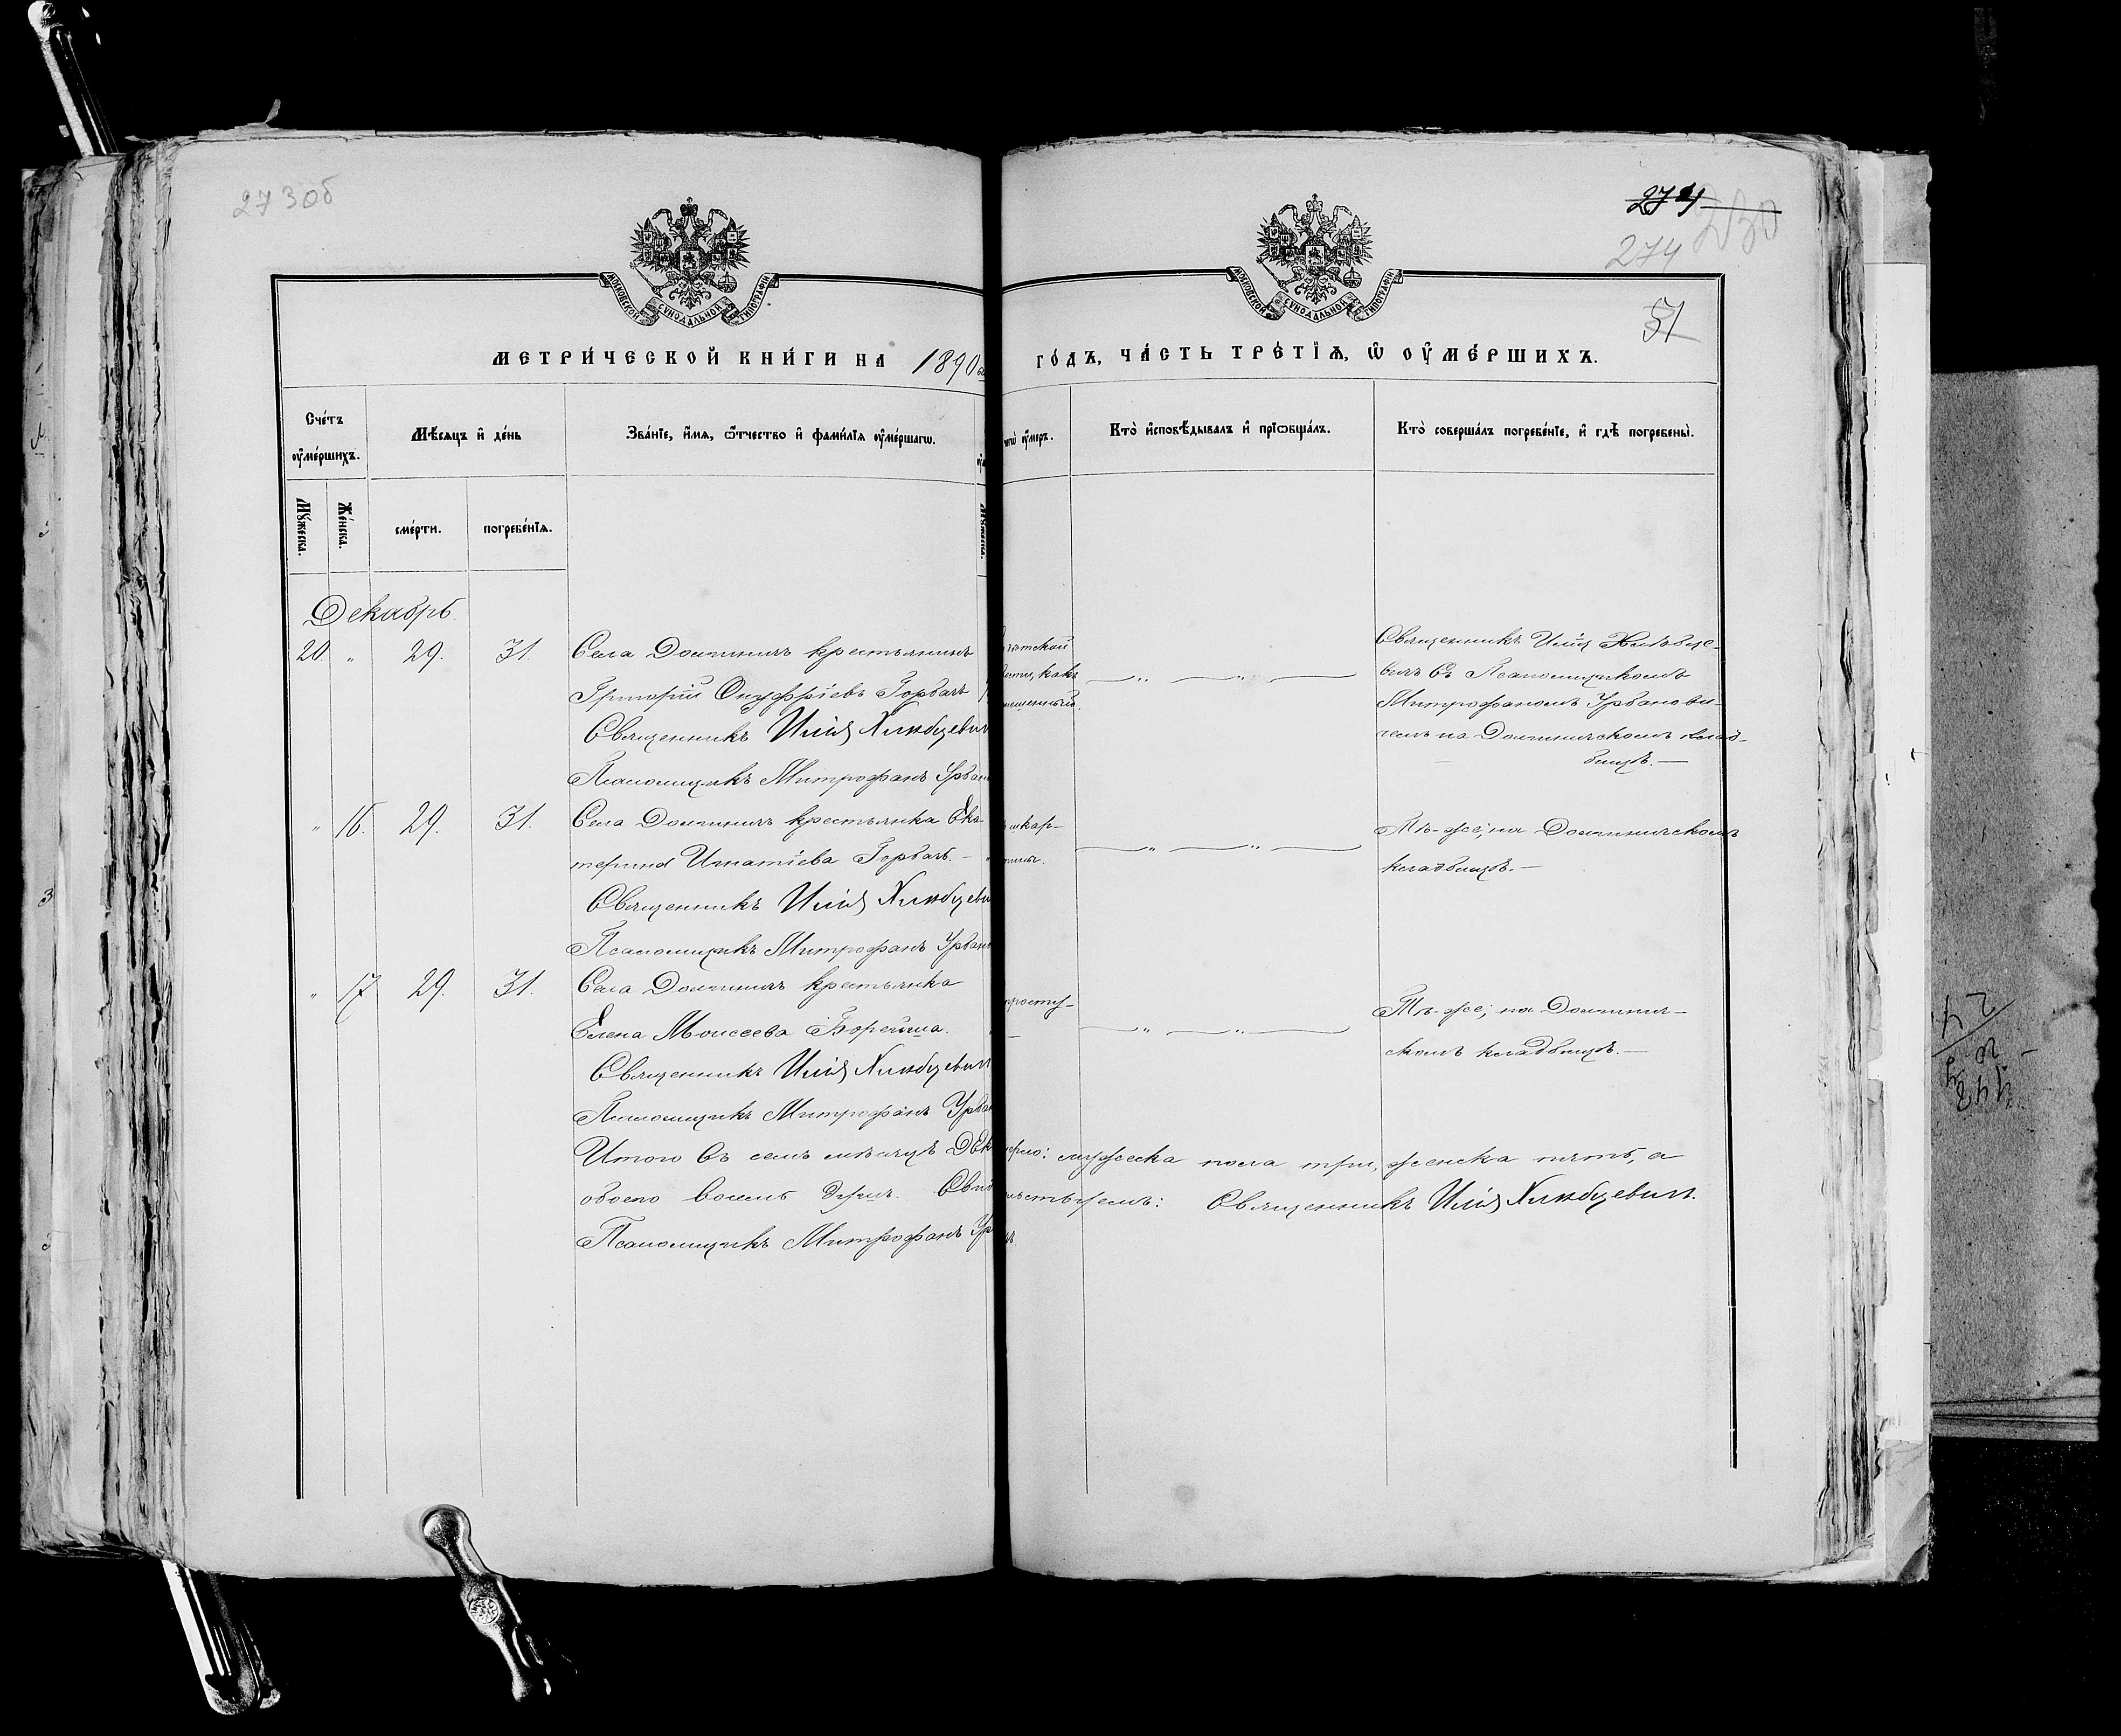 273об
274
274
280
51
МОСКОВСКОЙ СѴНОДАЛЬНОЙ ТИПОГРАФІИ
МОСКОВСКОЙ СѴНОДАЛЬНОЙ ТИПОГРАФІИ
МЕТРИ́ЧЕСКОЙ КНИ́ГИ НА 1890
ГО́ДЪ, ЧА́СТЬ ТРЕ́ТІѦ, Ѽ ОУ҆МЕ́РШИХЪ.
Сче́тъ оу҆ме́ршихъ.
Мѣ́сѧцъ и҆ де́нь
Зва́нїе, и҆́мѧ, ѻ҆́тчество и҆ фами́лїѧ оу҆ме́ршагѡ.
оу҆́меръ.
Кто̀ и҆сповѣ́дывалъ и҆ прїѡбща́лъ.
Кто̀ соверша́лъ погребе́нїе, и҆ гдѣ̀ погребены̀.
Мꙋ́жеска.
Же́нска.
сме́рти.
погребе́нїѧ.
Декабрь
20. " 29. 31. Села Долгиничъ крестьянинъ
Григорій Онуфріевъ Горбачъ
Священникъ Илія Хлѣбцевич
Псаломщикъ Митрофанъ Урбан
какъ
Священникъ Илія Хлѣбце-
вичъ съ Псаломщикомъ
Митрофаномъ Урбанови-
чемъ на Долгиничскомъ клад-
бищѣ.—
" 16. 29. 31. Села Долгиничъ крестьянка Ека-
терина Игнатіева Горбачъ.—
Священникъ Илія Хлѣбцеви
Псаломщикъ Митрофанъ Урбан
скар-
тины.
Тѣ-же; на Долгиничскомъ
кладбищѣ.—
" 17 29. 31. Села Долгиничъ крестьянка
Елена Моисеева Борейша.
Священникъ Илія Хлѣбцевич
Псаломщикъ Митрофанъ Урбан
просту-
Тѣ-же; на Долгинич-
скомъ кладбищѣ.—
Итого въ семъ мѣсяцѣ Дек мерло: мужеска пола три, женска пять, а
обоего восемь душъ. Свид тельствуемъ: Священникъ Илія Хлѣбцевичъ.
Псаломщикъ Митрофанъ Ур